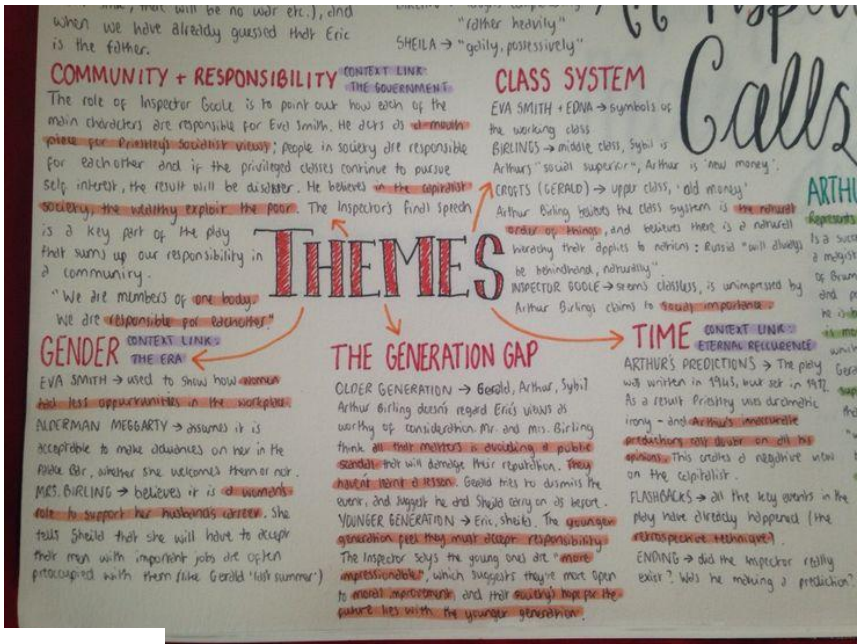 that will be no war etc.), and
when we have already guessed that Eric
is the father.
"rather heavily"
SHEILA → "gaily, possessively"
An Inspector
Calls
COMMUNITY + RESPONSIBILITY CONTEXT LINK:
THE GOVERNMENT
The role of Inspector Goole is to point out how each of the
main characters are responsible for Eva Smith. He acts as a mouth
piece for Priestley's socialist views; people in society are responsible
for eachother and if the privileged classes continue to pursue
self interest, the result will be disaster. He believes in the capitalist
society, the wealthy exploit the poor. The Inspector's final speech
is a key part of the play
that sums up our responsibility in
a community.
"We are members of one body.
We are responsible for eachother."
CLASS SYSTEM
EVA SMITH + EDNA → symbols of
the working class
BIRLINGS → middle class, Sybil is
Arthur's "social superior", Arthur is 'new money'.
CROFTS (GERALD) → upper class, 'old money'
Arthur Birling believes the class system is the natural
order of things, and believes there is a natural
hierarchy that applies to nations: Russia "will always
be behindhand, naturally".
INSPECTOR GOOLE → seems classless, is unimpressed by
Arthur Birlings claims to social importance.
THEMES
GENDER CONTEXT LINK:
THE ERA
EVA SMITH → used to show how women
had less oppurtunities in the workplace.
ALDERMAN MEGGARTY → assumes it is
acceptable to make advances on her in the
Palace Bar, whether she welcomes them or not.
MRS. BIRLING → believes it is a woman's
role to support her husband's career. She
tells Sheila that she will have to accept
that men with important jobs are often
preoccupied with them (like Gerald 'last summer')
THE GENERATION GAP
OLDER GENERATION → Gerald, Arthur, Sybil
Arthur Birling doesn't regard Eric's views as
worthy of consideration. Mr. and Mrs. Birling
think all that matters is avoiding a public
scandal that will damage their reputation. They
haven't learnt a lesson. Gerald tries to dismiss the
event, and suggest he and Sheila carry on as before.
YOUNGER GENERATION → Eric, Sheila. The younger
generation feel they must accept responsibility.
The Inspector says the young ones are "more
impressionable", which suggests they're more open
to moral improvement, and that society's hope for the
future lies with the younger generation.
TIME CONTEXT LINK:
ETERNAL RECCURENCE
ARTHUR'S PREDICTIONS → The play
was written in 1945, but set in 1912.
As a result Priestley uses dramatic
irony - and Arthur's inaccurate
predictions cast doubt on all his
opinions. This creates a negative view
on the capitalist.
FLASHBACKS → all the key events in the
play have already happened (the
retrospective technique).
ENDING → did the Inspector really
exist? Was he making a prediction?
ARTHU
Represents
Is a succ
a magist
of Brum
and p
he is